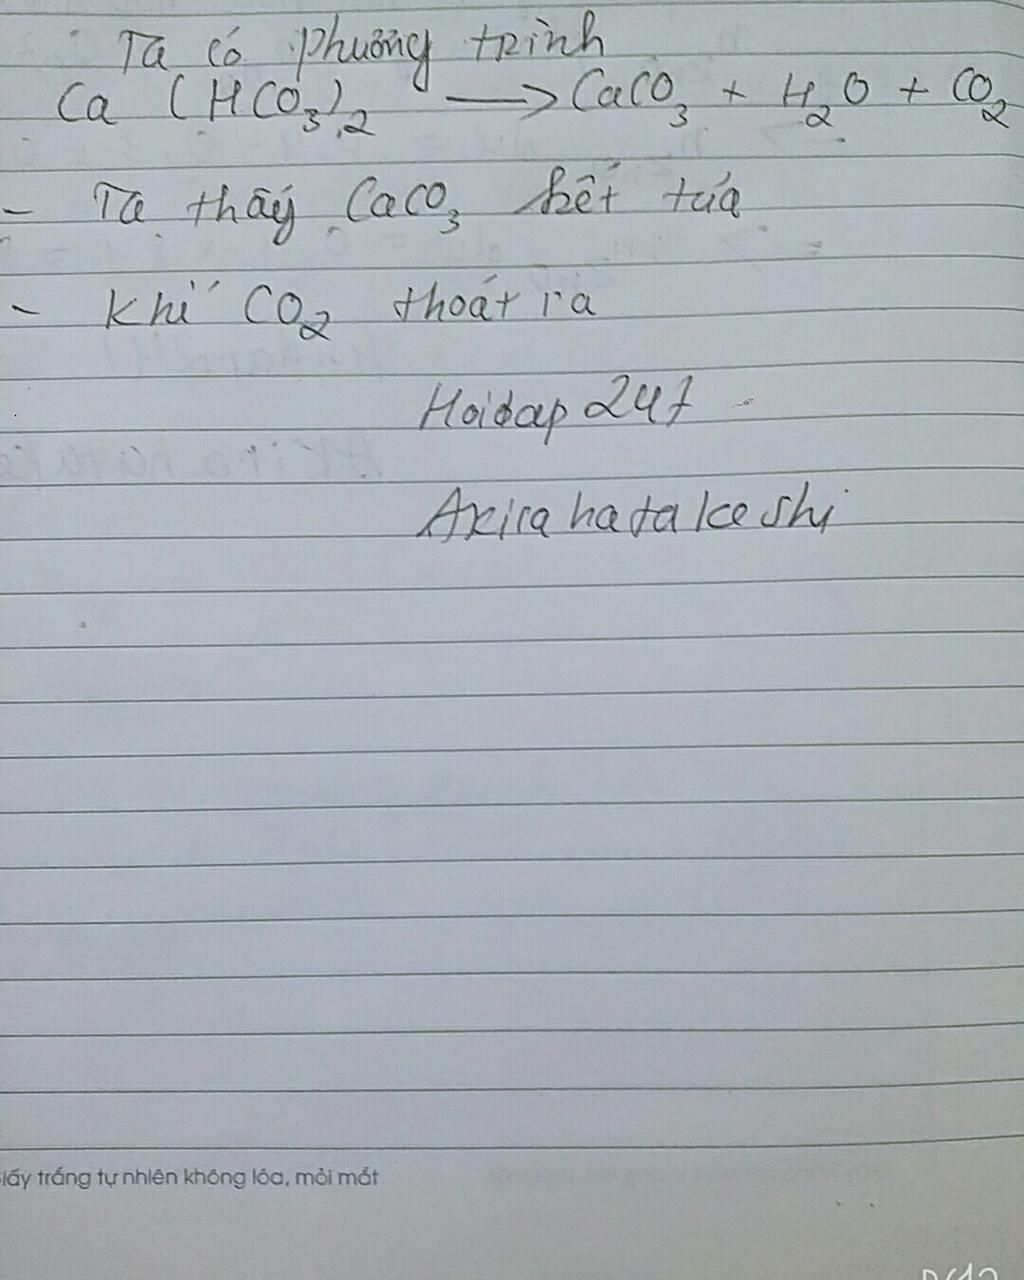 Ta có phương trình
Ca (HCO3)2 → CaCO3 + H2O + CO2
- Ta thấy CaCO3 kết tủa
- Khí CO2 thoát ra
Hoidap 247
Akira hatake shi
iấy trắng tự nhiên không lóa, mỏi mắt